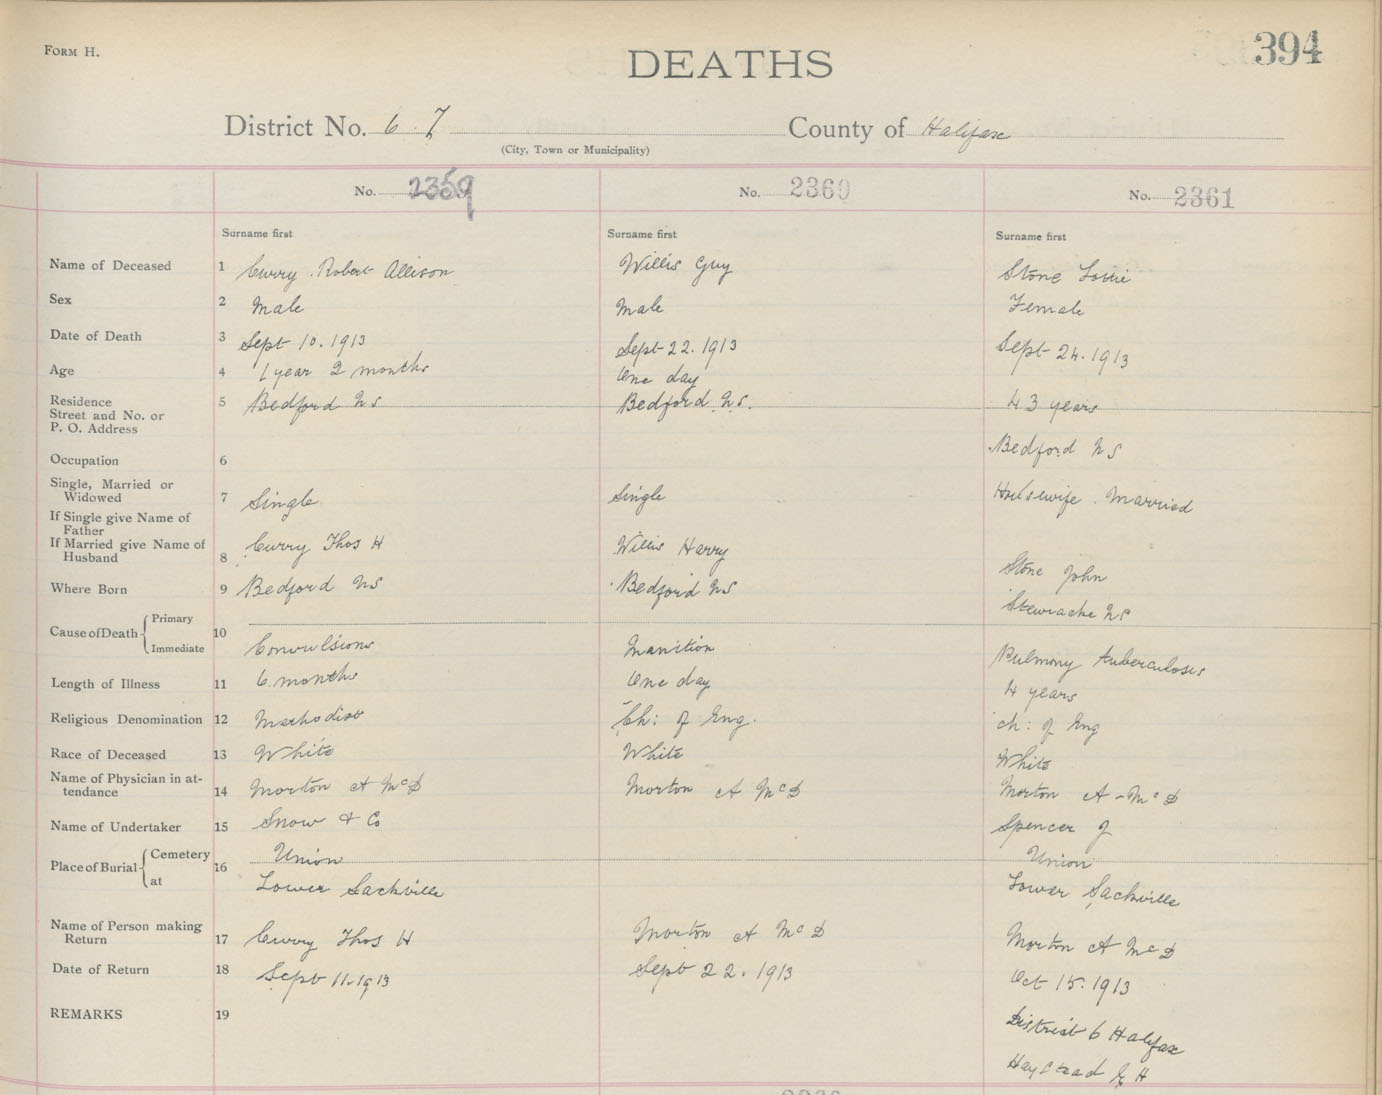 FORM H.
DEATHS
394
District No. 6 7
County of Halifax
(City, Town or Municipality)
No. 2359
No. 2360
No. 2361
Surname first
Surname first
Surname first
Name of Deceased 1 Curry Robert Allison
Willis Guy
Stone Lottie
Sex 2 Male
Male
Female
Date of Death 3 Sept 10. 1913
Sept 22. 1913
Sept 24. 1913
Age 4 1 year 2 months
One day
43 years
Residence
Street and No. or
P. O. Address
5 Bedford NS
Bedford N.S.
Bedford NS
Occupation 6
Single, Married or
Widowed
7 Single
Single
Housewife . Married
If Single give Name of
Father
If Married give Name of
Husband
8 Curry Thos H
Willis Harry
Stone John
Where Born 9 Bedford NS
Bedford NS
Stewiacke NS
Cause of Death Primary
Immediate
10 Convulsions
Inanition
Pulmony tuberculoses
Length of Illness 11 6 months
One day
4 years
Religious Denomination 12 Methodist
Ch: of Eng.
Ch: of Eng
Race of Deceased 13 White
White
White
Name of Physician in at-
tendance
14 Morton A McD
Morton A McD
Morton A-McD
Name of Undertaker 15 Snow & Co
Spencer J
Place of Burial Cemetery
at
16 Union
Lower Sackville
Union
Lower Sackville
Name of Person making
Return
17 Curry Thos H
Morton A McD
Morton A McD
Date of Return 18 Sept 11. 1913
Sept 22. 1913
Oct 15. 1913
REMARKS 19
District 6 Halifax
H